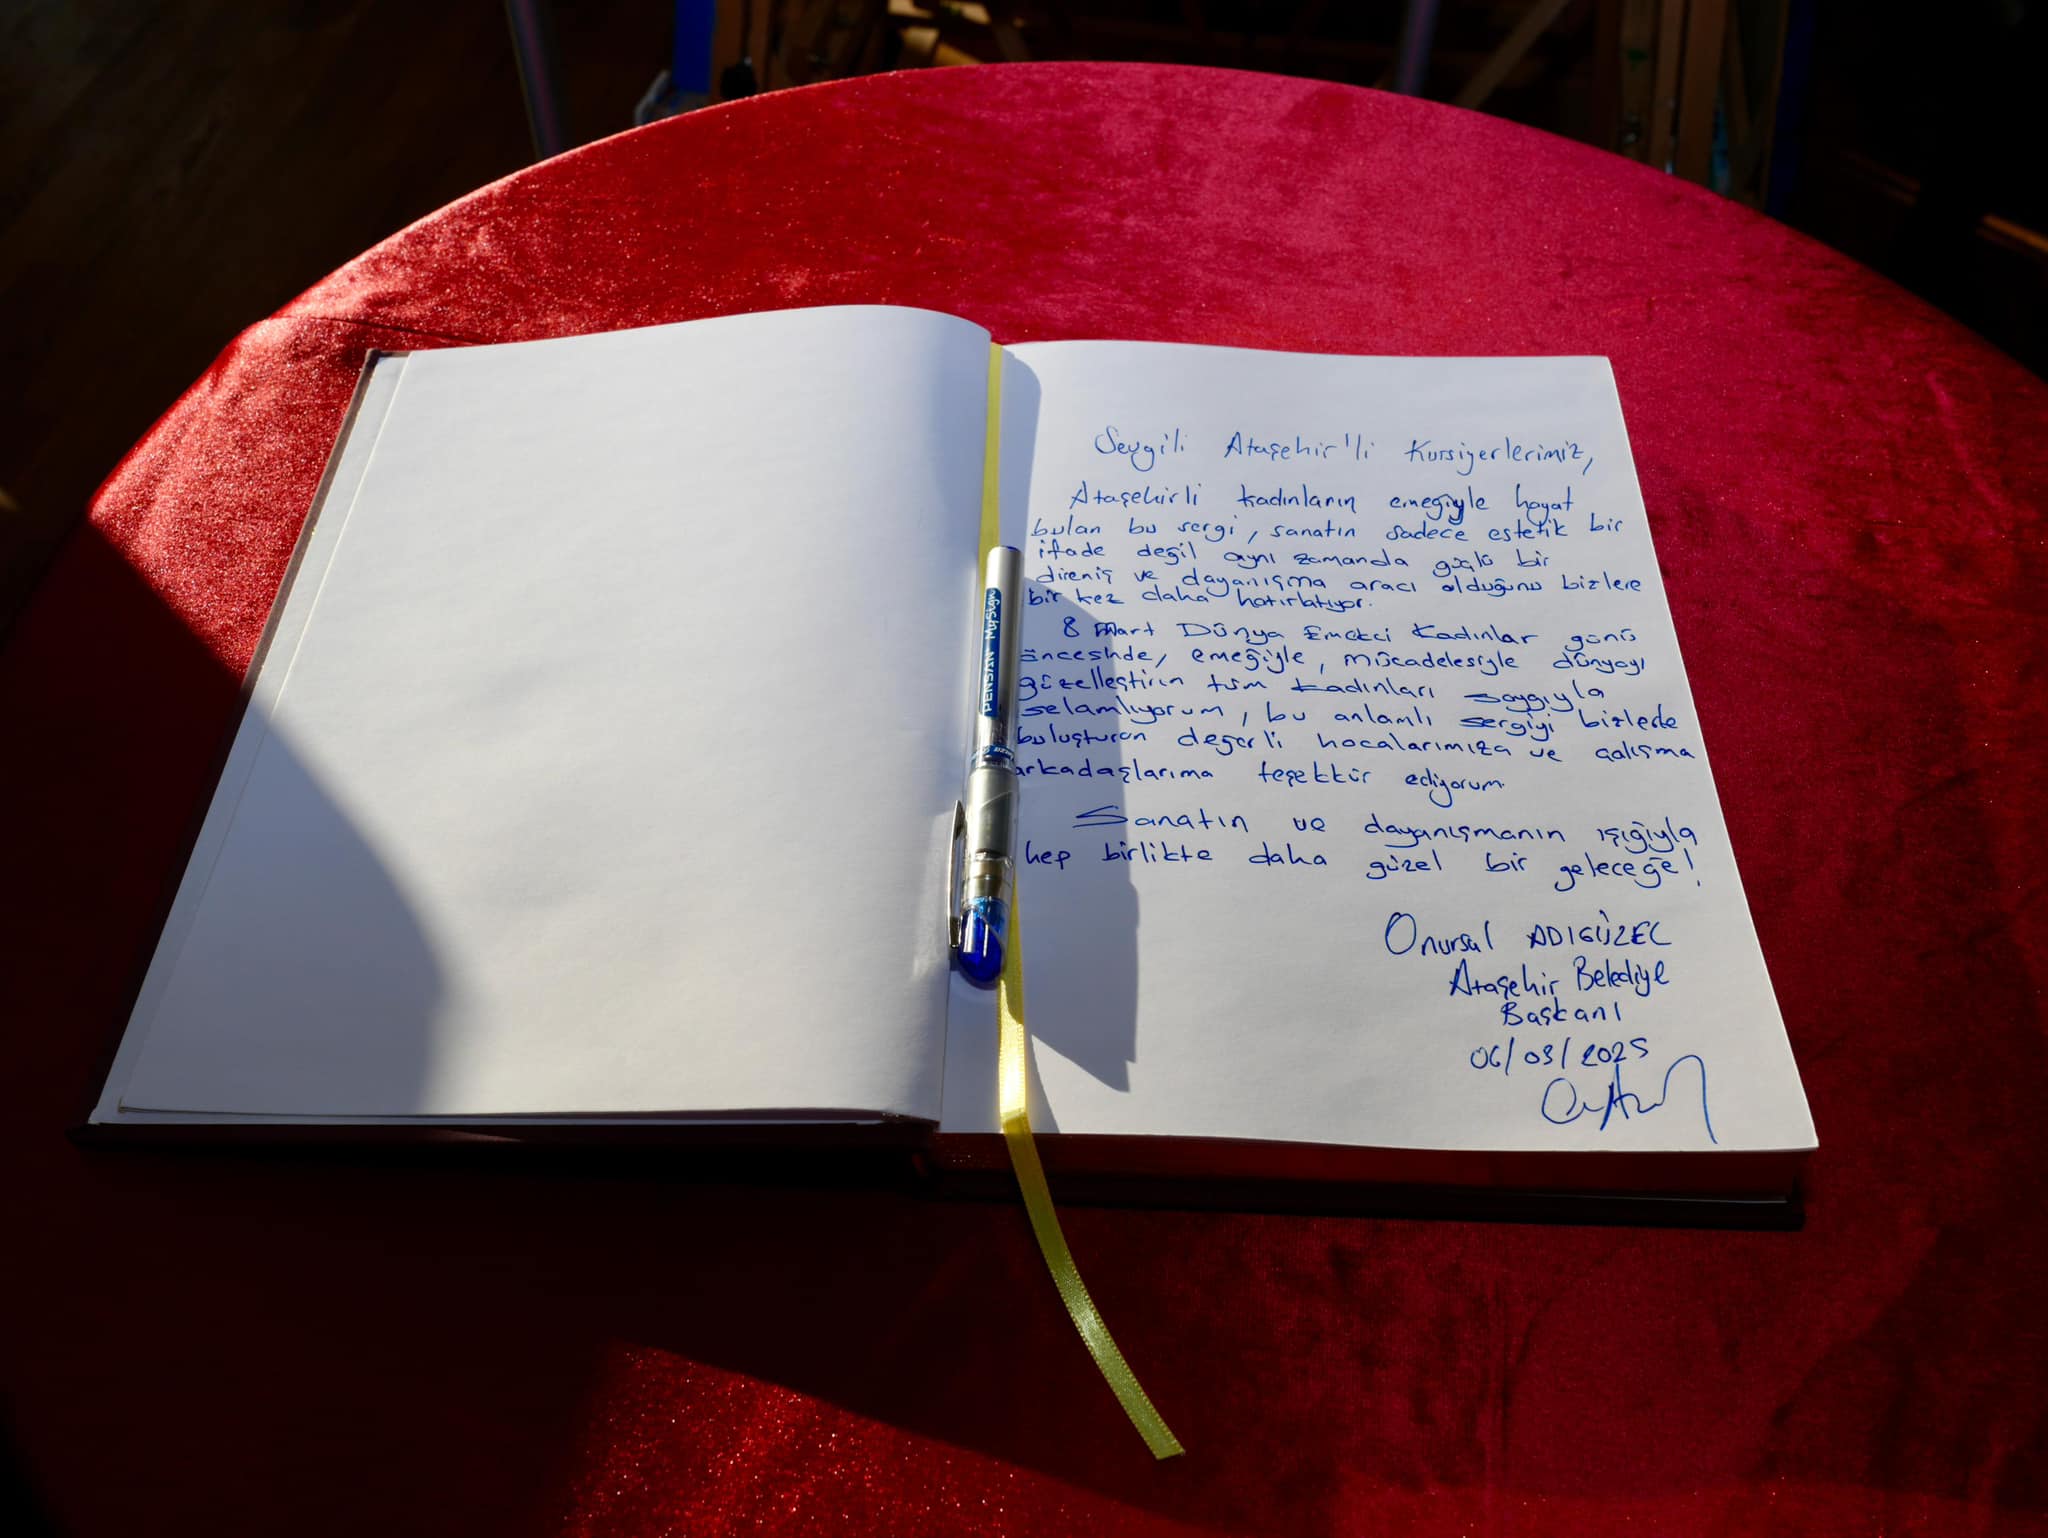 Sevgili Ataşehir'li Kursiyerlerimiz,
Ataşehirli kadınların emeğiyle hayat
bulan bu sergi, sanatın sadece estetik bir
ifade değil aynı zamanda güçlü bir
direniş ve dayanışma aracı olduğunu bizlere
bir kez daha hatırlatıyor.
8 Mart Dünya Emekçi Kadınlar günü
öncesinde, emeğiyle, mücadelesiyle dünyayı
güzelleştiren tüm kadınları saygıyla
selamlıyorum, bu anlamlı sergiyi bizlerle
buluşturan değerli hocalarımıza ve çalışma
arkadaşlarıma teşekkür ediyorum.
Sanatın ve dayanışmanın ışığıyla
hep birlikte daha güzel bir geleceğe!
Onursal ADIGÜZEL
Ataşehir Belediye
Başkanı
06/03/2025
PENSAN MySign